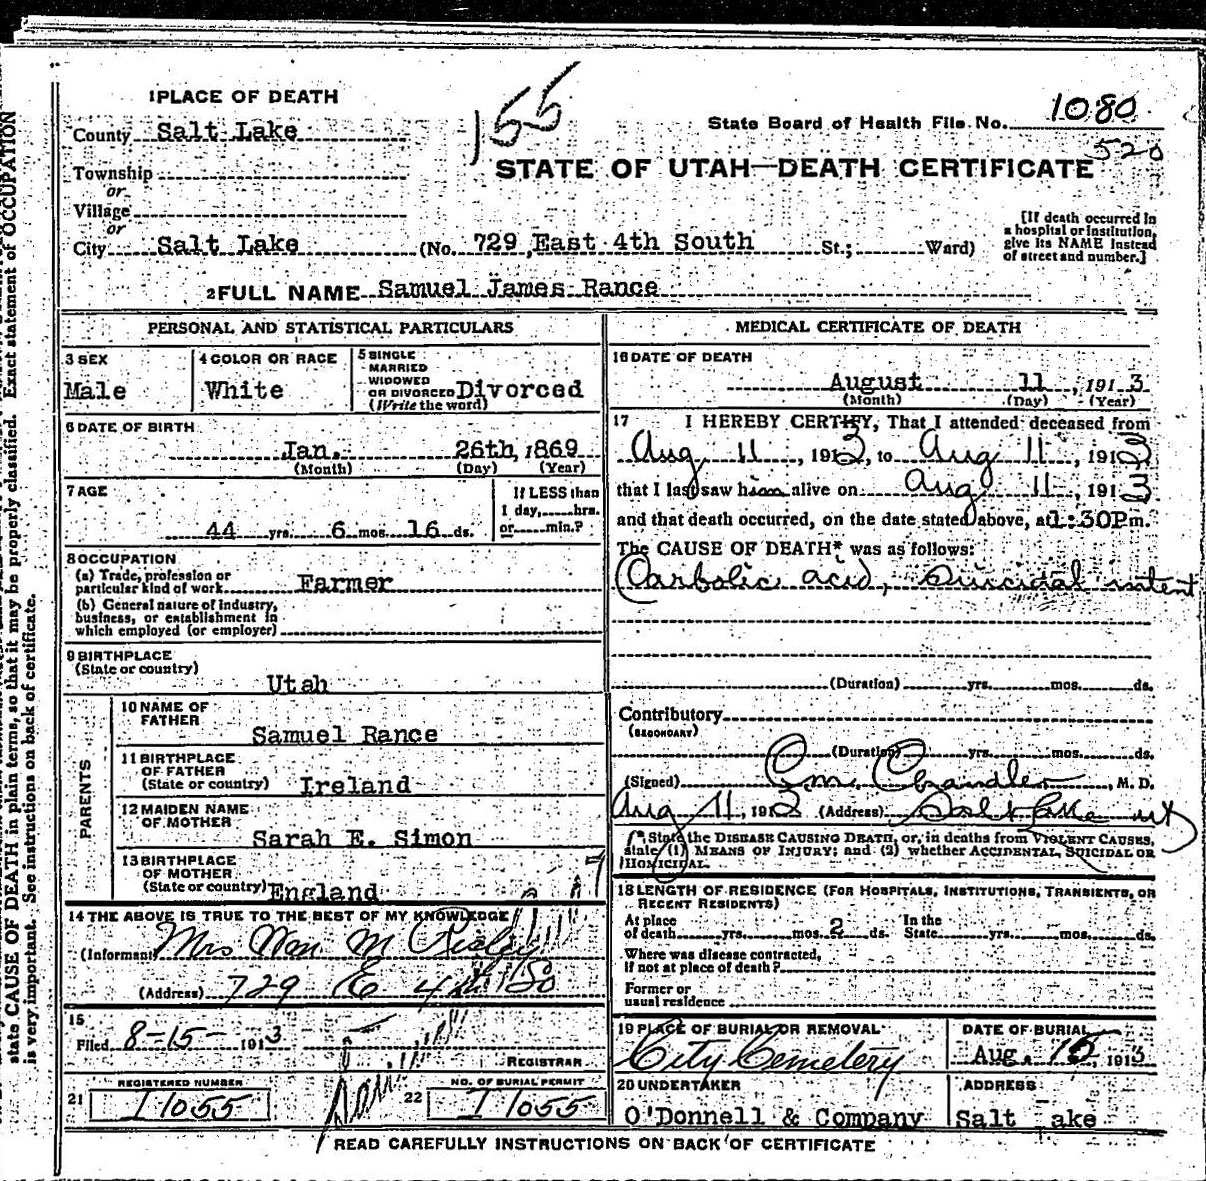 state CAUSE OF DEATH in plain terms, so that it may be properly classified. Exact statement of OCCUPATION
is very important. See instructions on back of certificate.
155
1080
520
1 PLACE OF DEATH
State Board of Health File No.
County Salt Lake
STATE OF UTAH—DEATH CERTIFICATE
Township
or
Village
or
City Salt Lake (No. 729 East 4th South St.; Ward)
[If death occurred in
a hospital or institution,
give its NAME instead
of street and number.]
2 FULL NAME Samuel James Rance
PERSONAL AND STATISTICAL PARTICULARS
3 SEX
Male
4 COLOR OR RACE
White
5 SINGLE
MARRIED
WIDOWED
OR DIVORCED Divorced
(Write the word)
6 DATE OF BIRTH
Jan. 26th, 1869
(Month) (Day) (Year)
7 AGE
44 yrs. 6 mos. 16 ds.
If LESS than
1 day, hrs.
or min.?
8 OCCUPATION
(a) Trade, profession or
particular kind of work Farmer
(b) General nature of Industry,
business, or establishment in
which employed (or employer)
9 BIRTHPLACE
(State or country)
Utah
PARENTS
10 NAME OF
FATHER
Samuel Rance
11 BIRTHPLACE
OF FATHER
(State or country) Ireland
12 MAIDEN NAME
OF MOTHER
Sarah E. Simon
13 BIRTHPLACE
OF MOTHER
(State or country) England
14 THE ABOVE IS TRUE TO THE BEST OF MY KNOWLEDGE
(Informant) Mrs Wm M
(Address) 729 E 4th So
15
Filed 8-15- 1913
REGISTRAR
21 REGISTERED NUMBER
I 1055
22 NO. OF BURIAL PERMIT
I 1055
MEDICAL CERTIFICATE OF DEATH
16 DATE OF DEATH
August 11, 1913
(Month) (Day) (Year)
17 I HEREBY CERTIFY, That I attended deceased from
Aug 11, 1913, to Aug 11, 1913
that I last saw him alive on Aug 11, 1913
and that death occurred, on the date stated above, at 1:30P m.
The CAUSE OF DEATH* was as follows:
Carbolic acid, Suicidal intent
(Duration) yrs. mos. ds.
Contributory
(SECONDARY)
(Duration) yrs. mos. ds.
(Signed) C.M. Chandler, M. D.
Aug 11, 1913 (Address) Salt Lake ut
(* State the DISEASE CAUSING DEATH, or, in deaths from VIOLENT CAUSES,
state (1) MEANS OF INJURY; and (2) whether ACCIDENTAL, SUICIDAL OR
HOMICIDAL.
18 LENGTH OF RESIDENCE (FOR HOSPITALS, INSTITUTIONS, TRANSIENTS, OR
RECENT RESIDENTS)
At place
of death yrs. mos. 2 ds.
In the
State yrs. mos. ds.
Where was disease contracted,
if not at place of death?
Former or
usual residence
19 PLACE OF BURIAL OR REMOVAL
City Cemetery
DATE OF BURIAL
Aug. 15, 1913
20 UNDERTAKER
O'Donnell & Company
ADDRESS
Salt ake
READ CAREFULLY INSTRUCTIONS ON BACK OF CERTIFICATE